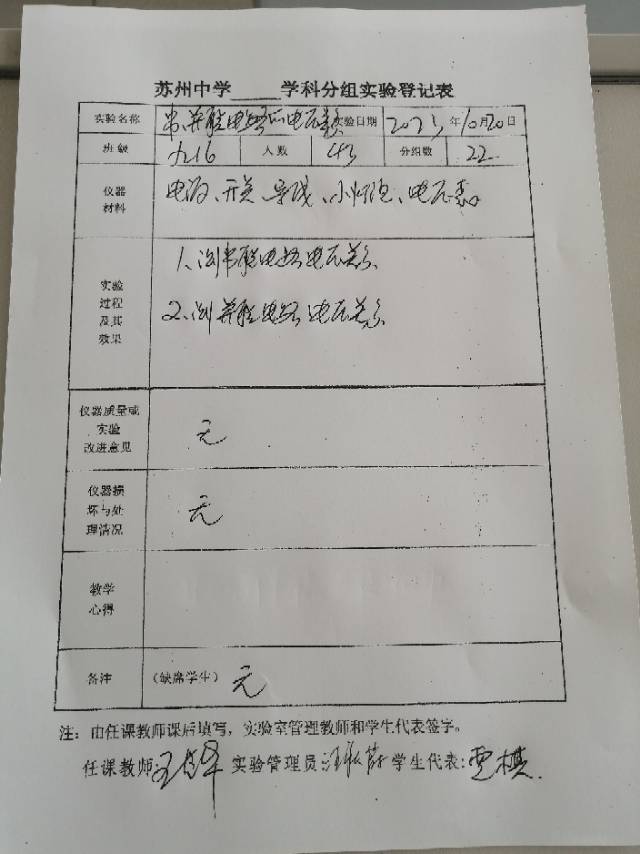 苏州中学_____学科分组实验登记表
实验名称 串、并联电路的电压关系 实验日期 2023年10月20日
班级 九16 人数 43 分组数 22
仪器材料 电源、开关、导线、小灯泡、电压表
实验过程及其效果
1、测串联电路电压关系
2、测并联电路电压关系
仪器质量或实验改进意见 无
仪器损坏与处理情况 无
教学心得
备注 (缺席学生) 无
注：由任课教师课后填写，实验室管理教师和学生代表签字。
任课教师: 王 实验管理员: 汪 学生代表: